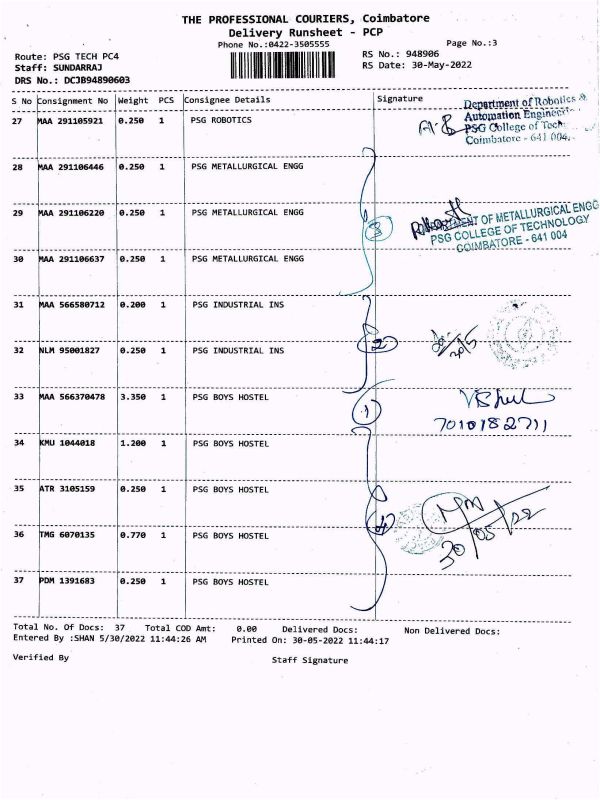 THE PROFESSIONAL COURIERS, Coimbatore
Delivery Runsheet - PCP
Phone No.:0422-3505555
Page No.:3
Route: PSG TECH PC4
Staff: SUNDARRAJ
DRS No.: DCJB94890603
RS No.: 948906
RS Date: 30-May-2022
S No Consignment No Weight PCS Consignee Details Signature
27 MAA 291105921 0.250 1 PSG ROBOTICS
Department of Robotics &
Automation Engineering
PSG College of Tech
Coimbatore - 641 004.
28 MAA 291106446 0.250 1 PSG METALLURGICAL ENGG
29 MAA 291106220 0.250 1 PSG METALLURGICAL ENGG
3
DEPARTMENT OF METALLURGICAL ENGG
PSG COLLEGE OF TECHNOLOGY
COIMBATORE - 641 004
30 MAA 291106637 0.250 1 PSG METALLURGICAL ENGG
31 MAA 566580712 0.200 1 PSG INDUSTRIAL INS
32 NLM 95001827 0.250 1 PSG INDUSTRIAL INS
2
33 MAA 566370478 3.350 1 PSG BOYS HOSTEL
1
7010182711
34 KMU 1044018 1.200 1 PSG BOYS HOSTEL
35 ATR 3105159 0.250 1 PSG BOYS HOSTEL
36 TMG 6070135 0.770 1 PSG BOYS HOSTEL
4
30/05/22
37 PDM 1391683 0.250 1 PSG BOYS HOSTEL
Total No. Of Docs: 37 Total COD Amt: 0.00 Delivered Docs: Non Delivered Docs:
Entered By :SHAN 5/30/2022 11:44:26 AM Printed On: 30-05-2022 11:44:17
Verified By Staff Signature